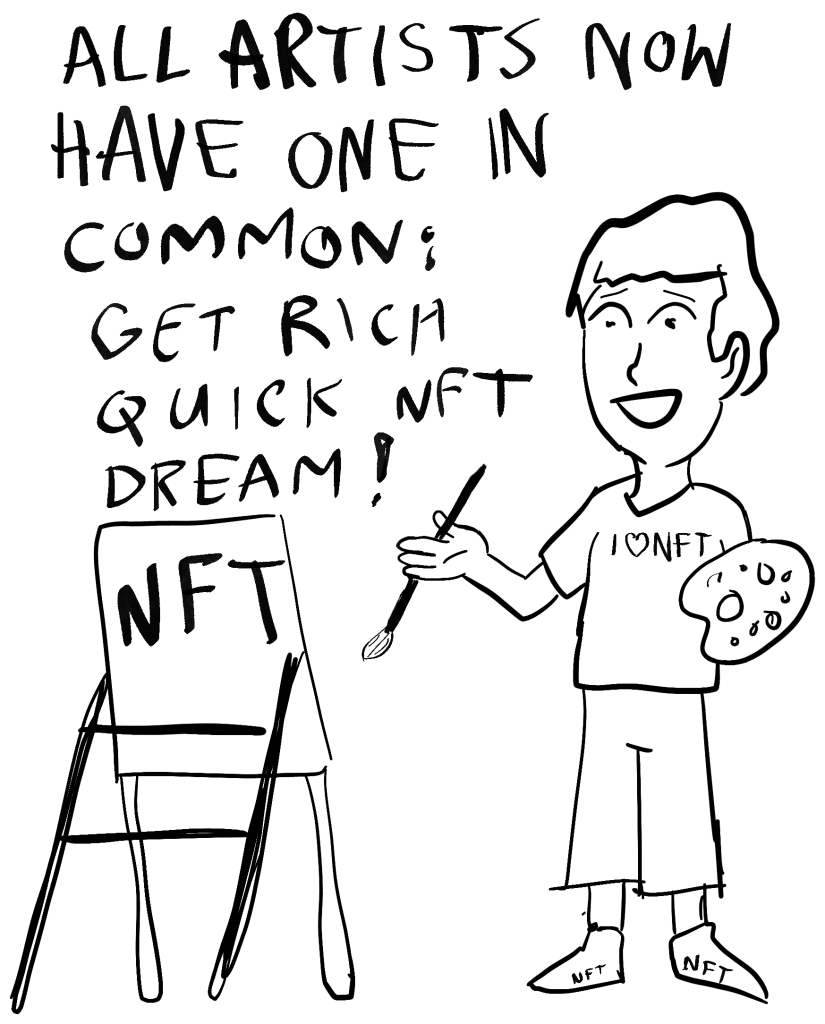 ALL ARTISTS NOW
HAVE ONE IN
COMMON:
GET RICH
QUICK NFT
DREAM!
NFT
I ♡ NFT
NFT
NFT